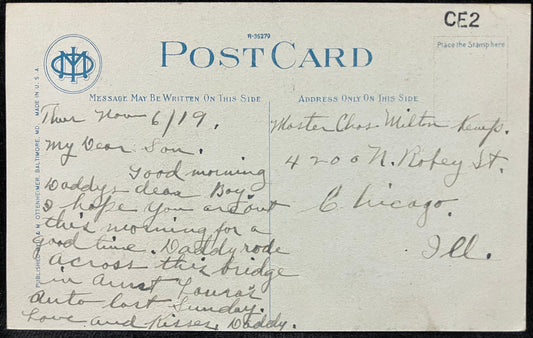 R-35279
CE2
POST CARD
Place the Stamp here
MESSAGE MAY BE WRITTEN ON THIS SIDE
ADDRESS ONLY ON THIS SIDE
PUBLISHED BY I. & M. OTTENHEIMER, BALTIMORE, MD. MADE IN U.S.A.
Thur Nov 6/19.
My Dear Son.
Good morning
Daddys dear Boy.
I hope you are out
this morning for a
good time. Daddy rode
across this bridge
in Aunt Louras
auto last Sunday.
Love and Kisses Daddy.
Master Chas Milton Kemp.
4200 N. Robey St.
Chicago.
Ill.